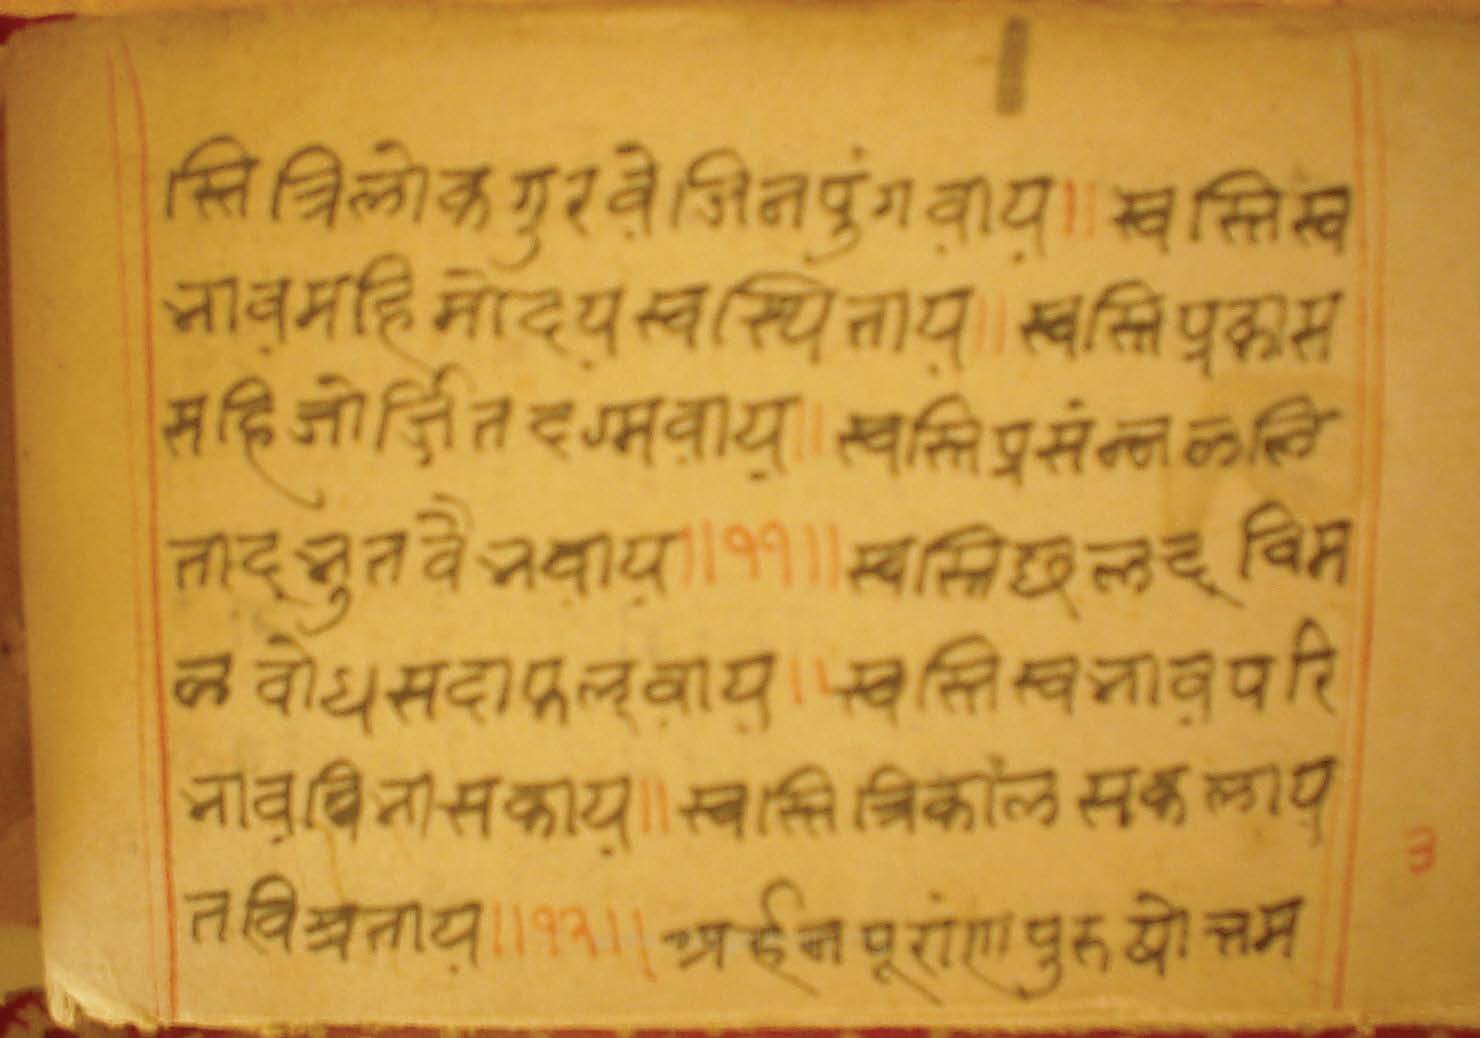 स्ति त्रिलोक गुरवे जिनपुंगवाय॥ स्वस्तिस्व
भावमहिमोदय स्वस्थिताय॥ स्वस्ति प्रकास
सहिजोर्जित दृग्मवाय॥ स्वस्ति प्रसंन्नललि
ताद्भुत वैभवाय॥११॥ स्वस्तिछलद् विम
ल वोध सदाप्लवाय॥ स्वस्ति स्वभाव परि
भाव विभासकाय॥ स्वस्ति त्रिकाल सकलाय
तविश्रताय॥१२॥ अर्हन पूरांण पुरुषोत्तम
३